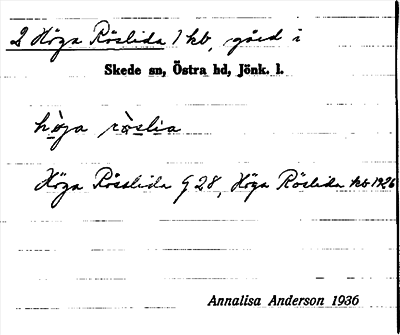 2 Höga Röslida 1 kb, gård i
Skede sn, Östra hd, Jönk. l.
hö̀ga rö̀slia
Höga Rösslida G 28, Höga Röslida kb 1926
Annalisa Anderson 1936